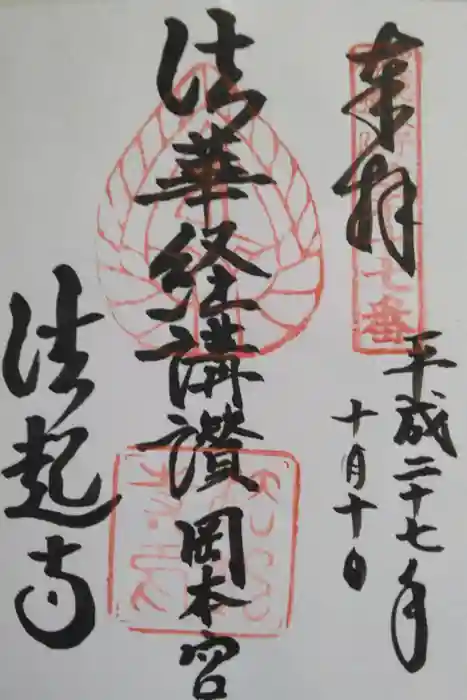 奉拝
平成二十七年
十月十日
法華経講讃岡本宮
法起寺